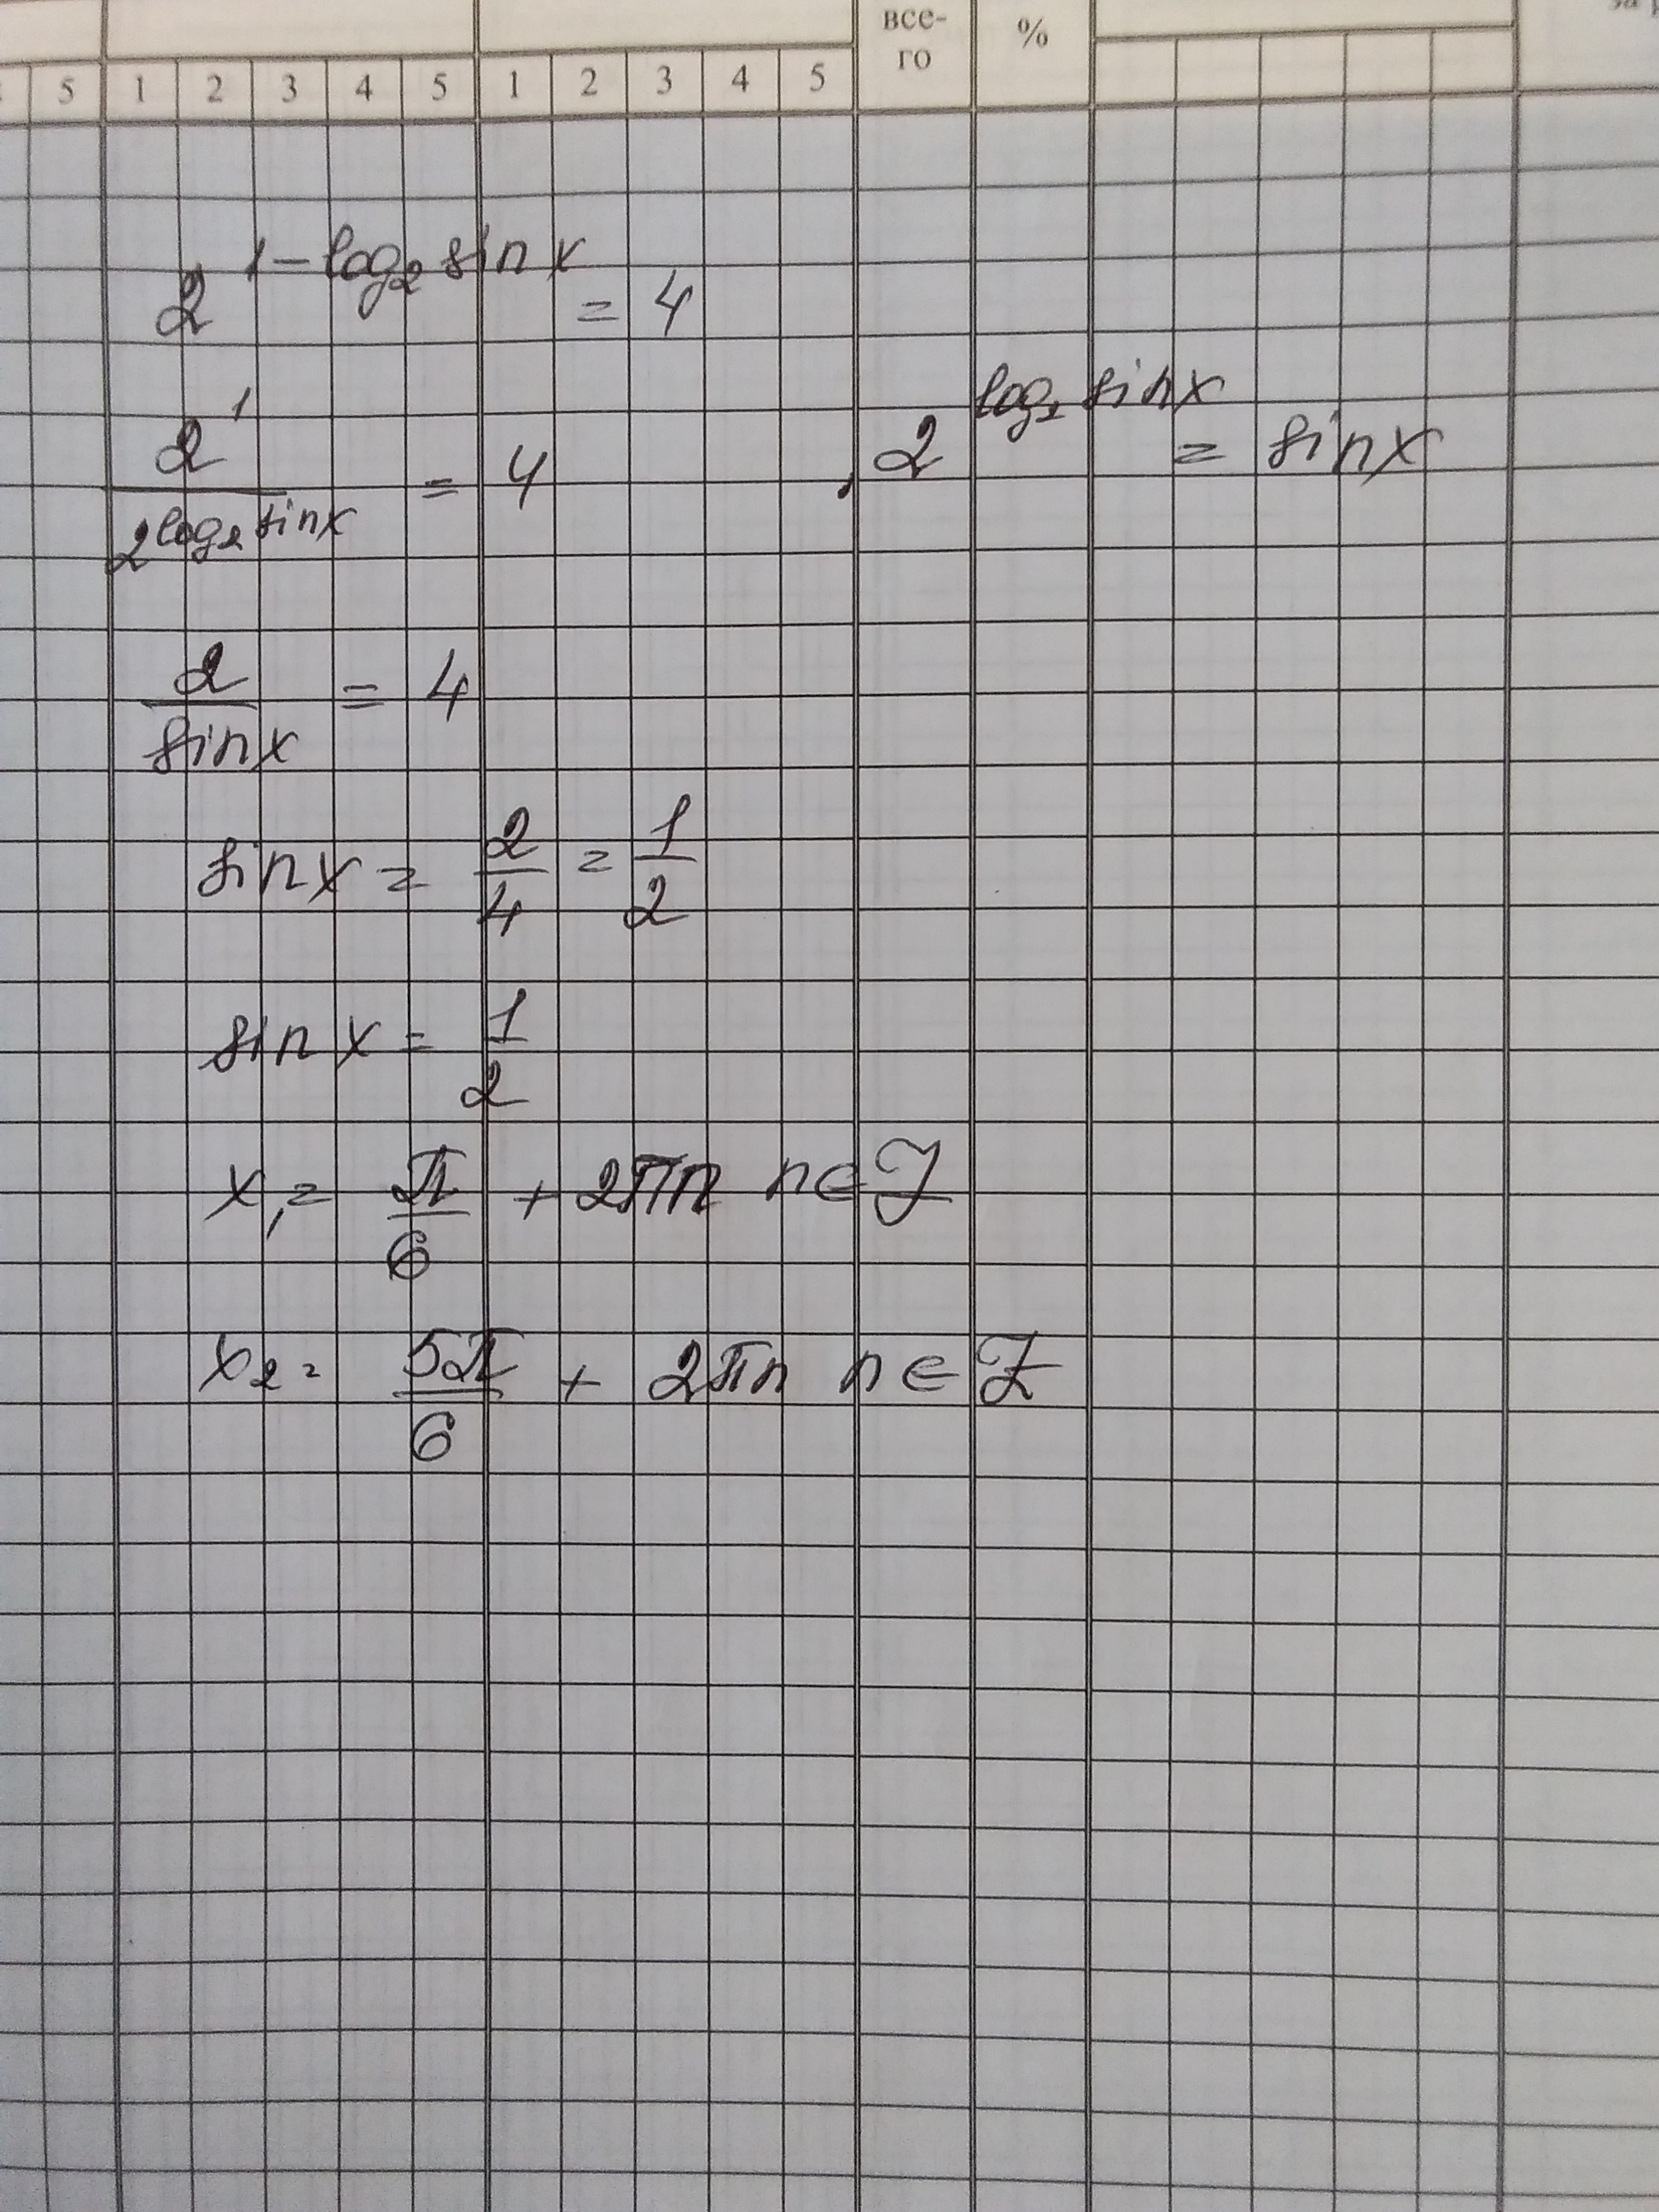 все-
го %
5 1 2 3 4 5 1 2 3 4 5
2^{1-log₂ sin x} = 4
2^1 / 2^{log₂ sin x} = 4 , 2^{log₂ sin x} = sin x
2 / sin x = 4
sin x = 2/4 = 1/2
sin x = 1/2
x₁ = π/6 + 2πn n ∈ Z
x₂ = 5π/6 + 2πn n ∈ Z